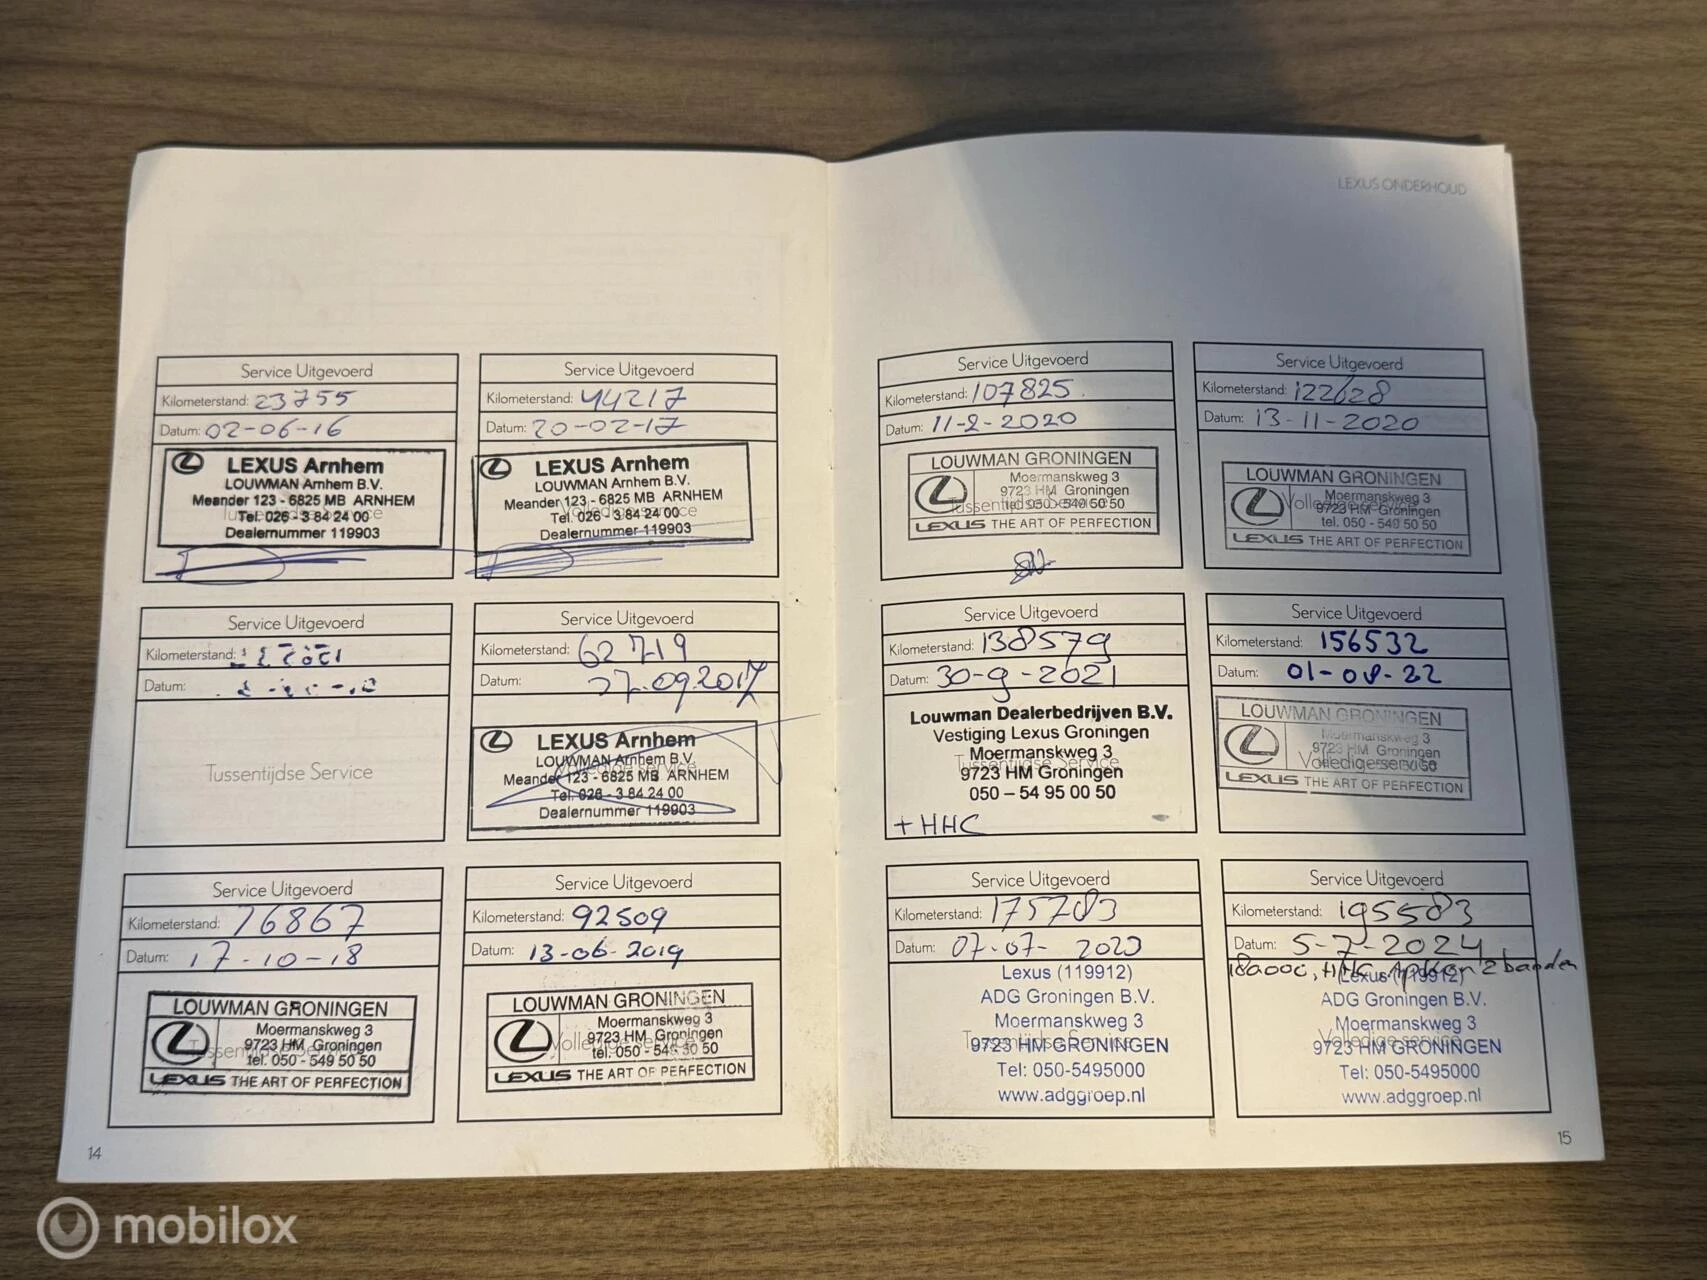 LEXUS ONDERHOUD
Service Uitgevoerd
Kilometerstand: 23755
Datum: 02-06-16
LEXUS Arnhem
LOUWMAN Arnhem B.V.
Meander 123 - 6825 MB ARNHEM
Tussentijdse Service
Tel. 026 - 3 84 24 00
Dealernummer 119903
Service Uitgevoerd
Kilometerstand: 44217
Datum: 20-02-17
LEXUS Arnhem
LOUWMAN Arnhem B.V.
Meander 123 - 6825 MB ARNHEM
Volledige service
Tel. 026 - 3 84 24 00
Dealernummer 119903
Service Uitgevoerd
Kilometerstand:
Datum:
Tussentijdse Service
Service Uitgevoerd
Kilometerstand: 62719
Datum: 27.09.2017
LEXUS Arnhem
LOUWMAN Arnhem B.V.
Volledige service
Meander 123 - 6825 MB ARNHEM
Tel. 026 - 3 84 24 00
Dealernummer 119903
Service Uitgevoerd
Kilometerstand: 76867
Datum: 17-10-18
LOUWMAN GRONINGEN
Moermanskweg 3
9723 HM Groningen
Tussentijdse Service
tel. 050 - 549 50 50
LEXUS THE ART OF PERFECTION
Service Uitgevoerd
Kilometerstand: 92509
Datum: 13-06-2019
LOUWMAN GRONINGEN
Moermanskweg 3
9723 HM Groningen
Volledige service
tel. 050 - 549 50 50
LEXUS THE ART OF PERFECTION
14
Service Uitgevoerd
Kilometerstand: 107825
Datum: 11-2-2020
LOUWMAN GRONINGEN
Moermanskweg 3
9723 HM Groningen
Tussentijdse Service
tel. 050 - 549 50 50
LEXUS THE ART OF PERFECTION
Service Uitgevoerd
Kilometerstand: 122628
Datum: 13-11-2020
LOUWMAN GRONINGEN
Moermanskweg 3
Volledige service
9723 HM Groningen
tel. 050 - 549 50 50
LEXUS THE ART OF PERFECTION
Service Uitgevoerd
Kilometerstand: 138579
Datum: 30-9-2021
Louwman Dealerbedrijven B.V.
Vestiging Lexus Groningen
Moermanskweg 3
Tussentijdse Service
9723 HM Groningen
050 – 54 95 00 50
+ HHC
Service Uitgevoerd
Kilometerstand: 156532
Datum: 01-08-22
LOUWMAN GRONINGEN
Moermanskweg 3
9723 HM Groningen
Volledige service
LEXUS THE ART OF PERFECTION
Service Uitgevoerd
Kilometerstand: 175783
Datum: 07-07-2023
Lexus (119912)
ADG Groningen B.V.
Moermanskweg 3
Tussentijdse Service
9723 HM GRONINGEN
Tel: 050-5495000
www.adggroep.nl
Service Uitgevoerd
Kilometerstand: 195583
Datum: 5-7-2024
180000, HHC, 2 banden
Lexus (119912)
ADG Groningen B.V.
Moermanskweg 3
Volledige service
9723 HM GRONINGEN
Tel: 050-5495000
www.adggroep.nl
15
mobilox